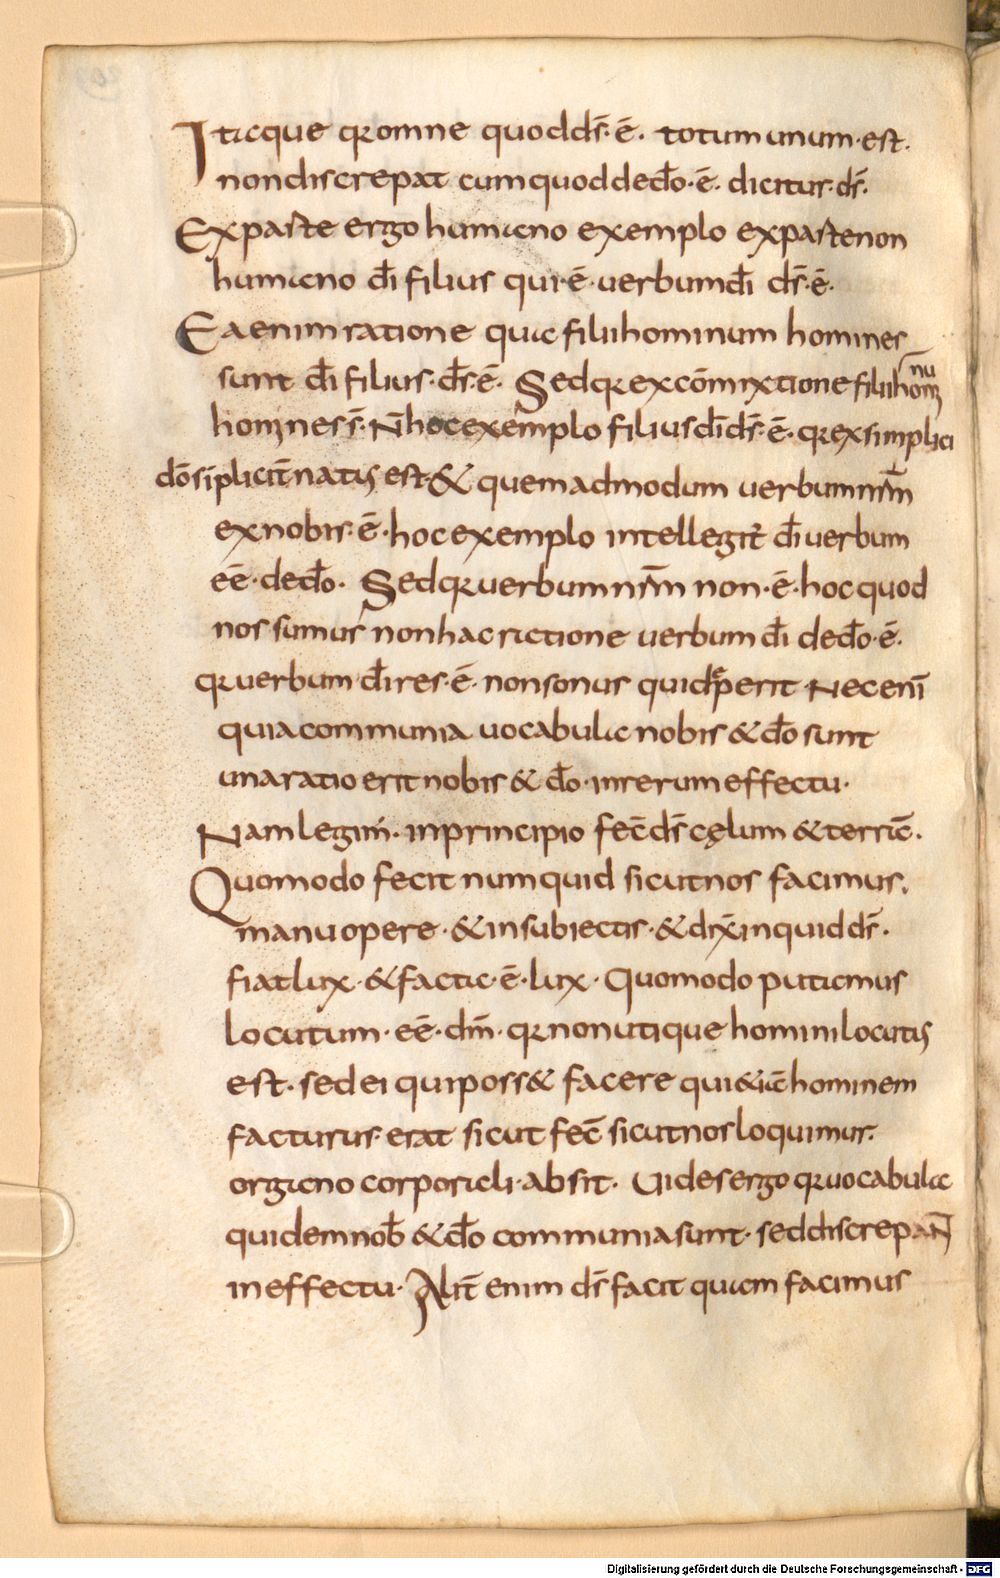 Itaque qr omne quod ds̄·ē· totum unum·est·
non discrepat cum quod de dō·ē· dicitur·ds̄·
Exparte ergo humano exemplo exparte non
humano dī filius qui·ē·uerbum dī ds̄·ē·
Ea enim ratione qua filii hominum homines
sunt dī filius·ds̄·ē· Sed qr ex cōmixtione filii hom̄nū
homines s̄· N̄ hoc exemplo filius dī ds̄·ē· qr ex simplici
dō sīplicit̄ natus est·& quemadmodum uerbum nr̄m
ex nobis·ē·hoc exemplo intellegit̄ dī uerbum
eē·de dō· Sed qr uerbum nr̄m non·ē·hoc quod
nos sumus non hac ratione uerbum dī de dō·ē·
qr uerbum dī res·ē· non sonus qui depperit Nec enī
quia communia uocabula nobis & dō sunt
una ratio erit nobis & dō·in rerum effectu·
Nam legim̄· in principio fec̄ ds̄ cęlum & terrā·
Quomodo fecit numquid sicut nos facimus,
manu opere·& in subiectis·& dix̄ inquid ds̄·
fiat lux·& facta·ē·lux· Quomodo putamus
locutum·eē·dm̄·qr non utique homini locutus
est·sed ei qui poss& facere qui &iā hominem
facturus erat sicut fec̄ sicut nos loquimur·
organo corporali·absit· Uides ergo qr uocabula
quidem nob̄ & dō communia sunt·sed discrepant
in effectu· Alit̄ enim ds̄ facit quam facimus
Digitalisierung gefördert durch die Deutsche Forschungsgemeinschaft - DFG